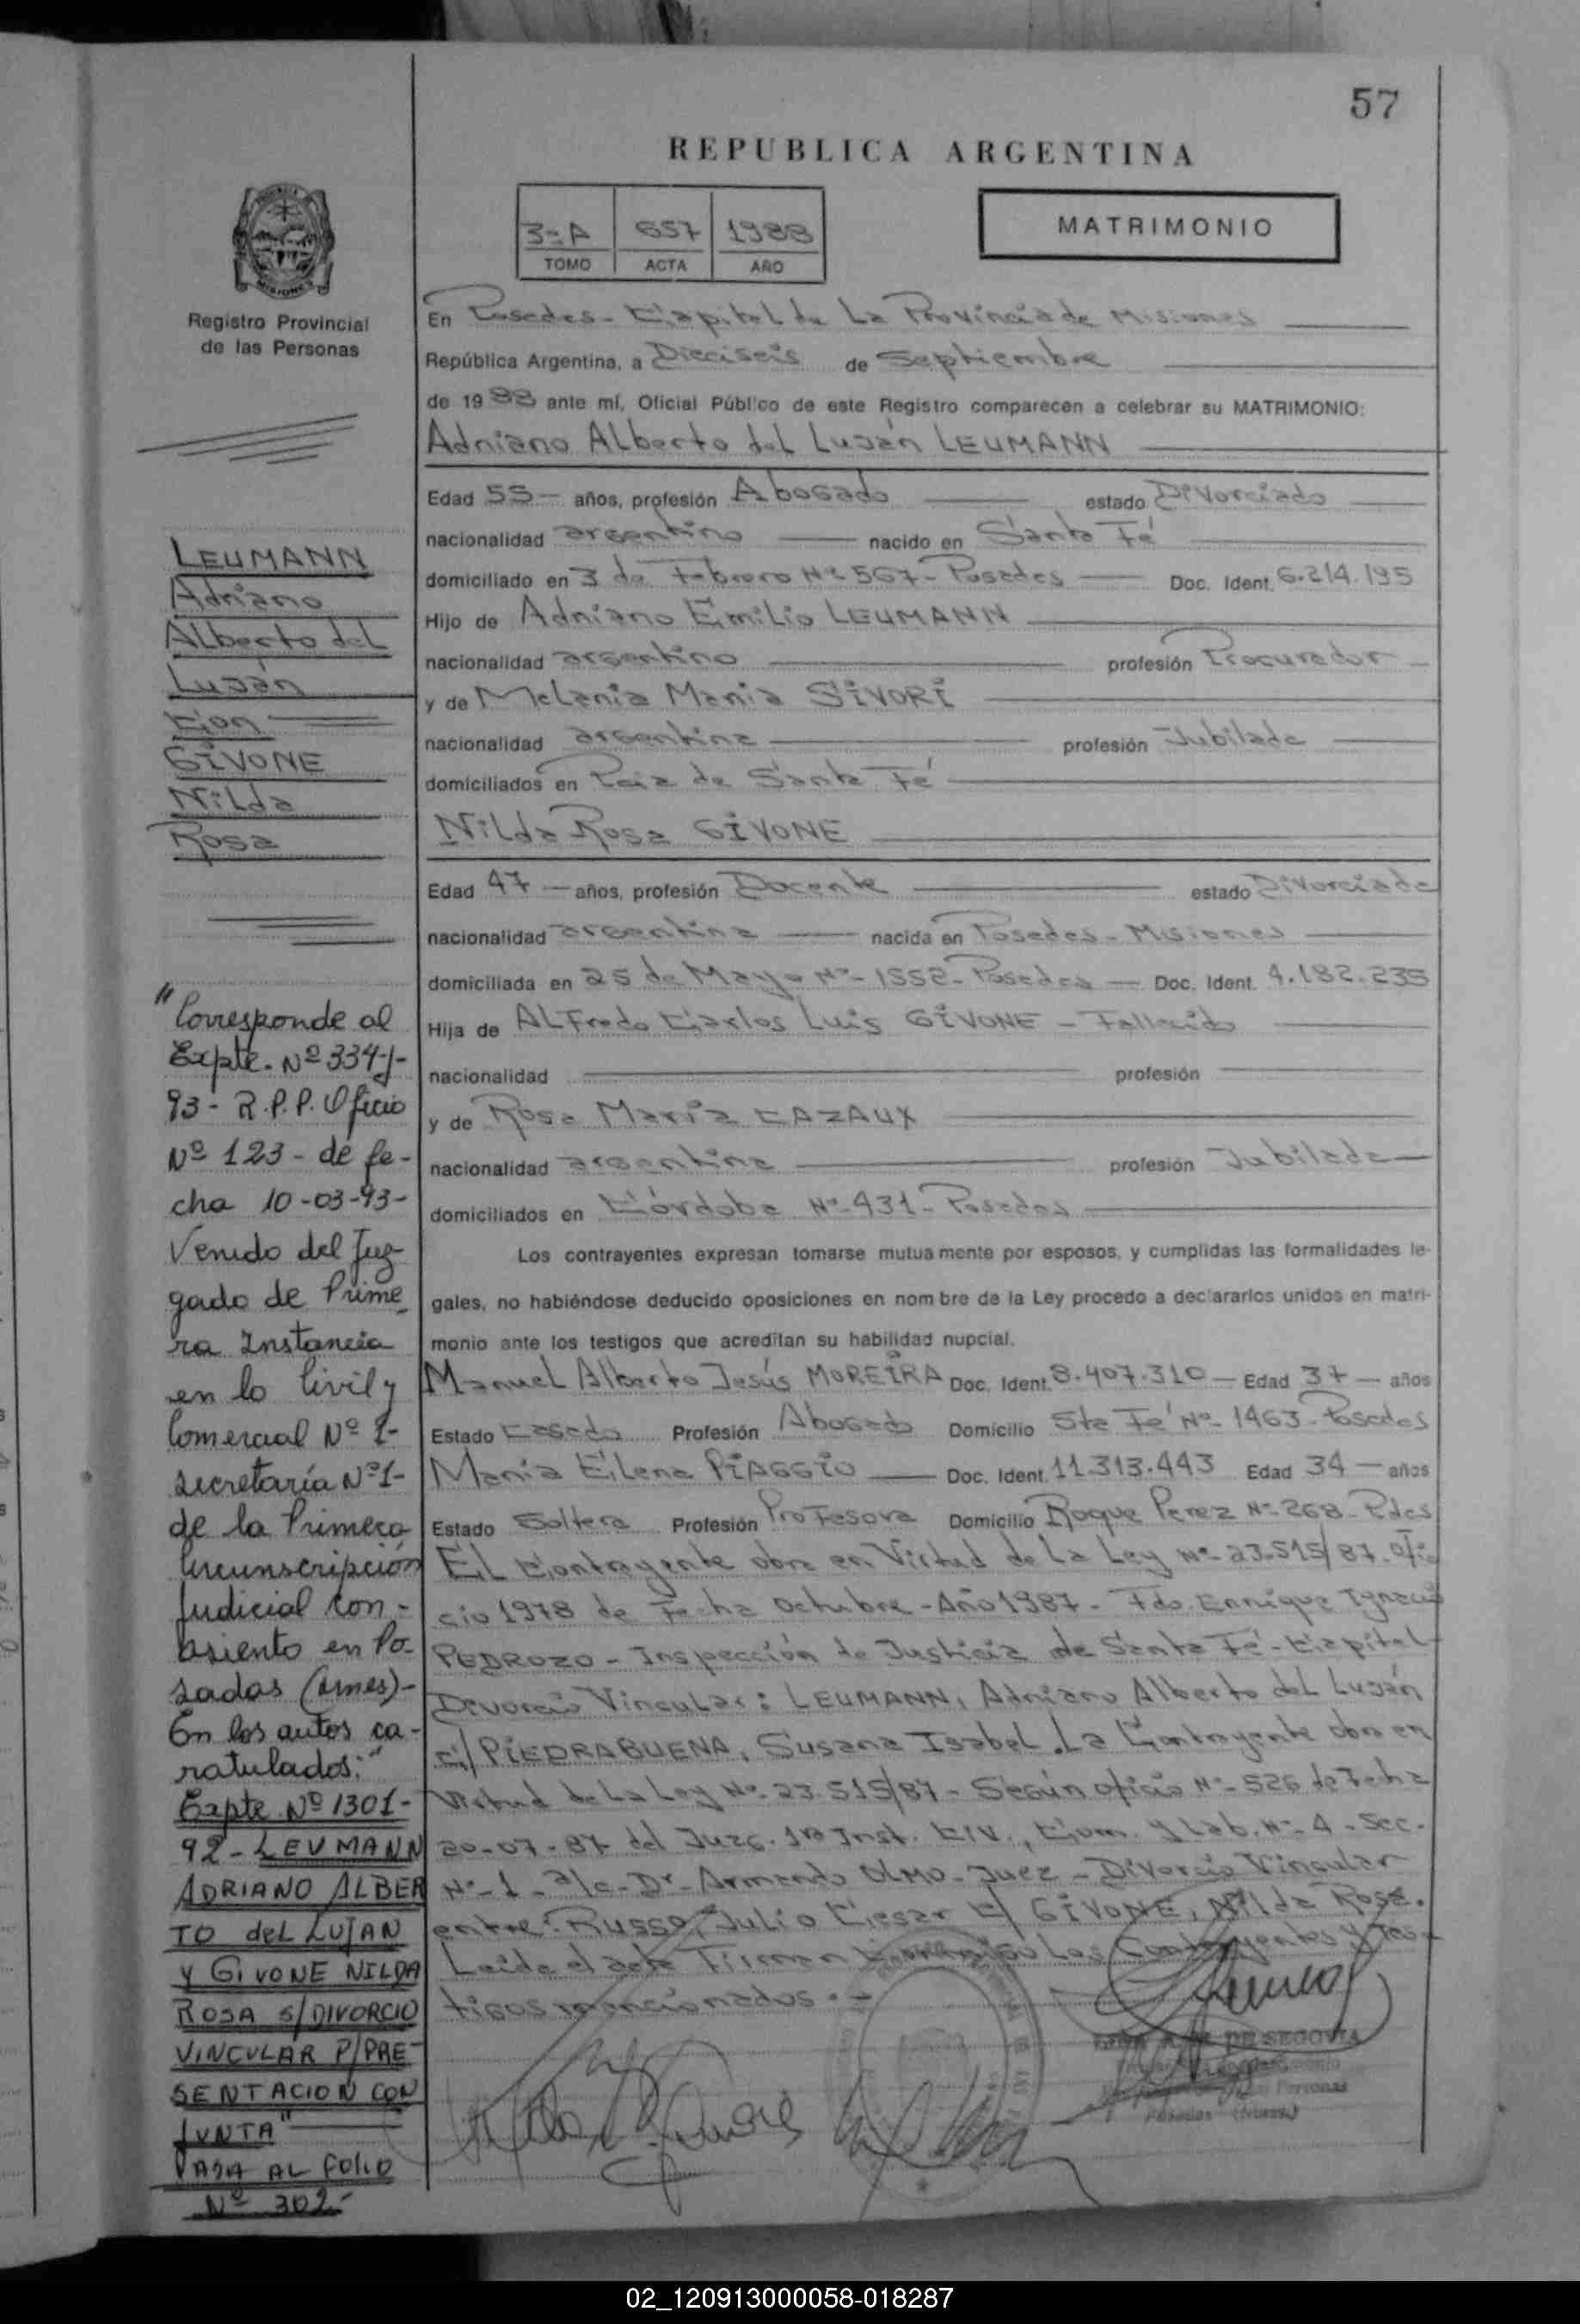 57
REPUBLICA ARGENTINA
3-A 657 1988
TOMO ACTA AÑO
MATRIMONIO
Registro Provincial
de las Personas
LEUMANN
Adriano
Alberto del
Luján
Con
GIVONE
Nilda
Rosa
"Corresponde al
Expte. Nº 334-J-
93- R.P.P. Oficio
Nº 123- de fe-
cha 10-03-93-
Venido del Juz-
gado de Prime
ra Instancia
en lo Civil y
Comercial Nº 1-
Secretaría Nº 1-
de la Primera
Circunscripción
Judicial con-
asiento en Po-
sadas (Mnes)-
En los autos ca-
ratulados:"
Expte Nº 1301-
92- LEUMANN
ADRIANO ALBER
TO deL LUJAN
y GIVONE NILDA
ROSA S/DIVORCIO
VINCULAR P/PRE-
SENTACION CON
JUNTA"
PASA AL FOLIO
Nº 302-
En Posadas - Capital de La Provincia de Misiones
República Argentina, a Dieciseis de Septiembre
de 1988 ante mí, Oficial Público de este Registro comparecen a celebrar su MATRIMONIO:
Adriano Alberto del Luján LEUMANN
Edad 55- años, profesión Abogado estado Divorciado
nacionalidad argentino nacido en Santa Fé
domiciliado en 3 de Febrero Nº 567- Posadas Doc. Ident. 6.214.195
Hijo de Adriano Emilio LEUMANN
nacionalidad argentino profesión Procurador
y de Melania María SIVORI
nacionalidad argentina profesión Jubilada
domiciliados en Pcia de Santa Fé
Nilda Rosa GIVONE
Edad 47 - años, profesión Docente estado Divorciada
nacionalidad argentina nacida en Posadas - Misiones
domiciliada en 25 de Mayo Nº- 1552- Posadas - Doc. Ident. 4.182.235
Hija de Alfredo Carlos Luis GIVONE - Fallecido
nacionalidad profesión
y de Rosa María CAZAUX
nacionalidad argentina profesión Jubilada
domiciliados en Córdoba Nº- 431- Posadas
Los contrayentes expresan tomarse mutuamente por esposos, y cumplidas las formalidades le-
gales, no habiéndose deducido oposiciones en nombre de la Ley procedo a declararlos unidos en matri-
monio ante los testigos que acreditan su habilidad nupcial.
Manuel Alberto Jesús MOREIRA Doc. Ident. 8.407.310 - Edad 37 - años
Estado Casado Profesión Abogado Domicilio Sta Fé Nº- 1463- Posadas
María Elena PIAGGIO Doc. Ident. 11.313.443 Edad 34 - años
Estado Soltera Profesión Profesora Domicilio Roque Perez Nº- 268- Pdas
El Contrayente obra en Virtud de La Ley Nº- 23.515/87- Ofi
cio 1978 de Fecha Octubre - Año 1987- Fdo. Enrique Ignacio
PEDROZO - Inspección de Justicia de Santa Fé - Capital-
Divorcio Vincular: LEUMANN, Adriano Alberto del Luján
c/ PIEDRABUENA, Susana Isabel. La Contrayente obra en
Virtud de La Ley Nº- 23.515/87- Según oficio Nº- 526 de Fecha
20-07-87 del Juzg. 1ra Inst. Civ., Com. y Lab. Nº- 4- Sec-
Nº- 1- a/c- Dr- Armando OLMO- Juez - Divorcio Vincular
entre: Russo, Julio Cesar c/ GIVONE, Nilda Rosa.
Leida el acta Firman Conmigo Los Contrayentes y Tes-
tigos mencionados.-
DE SEGOVIA
Posadas (Mnes.)
02_120913000058-018287